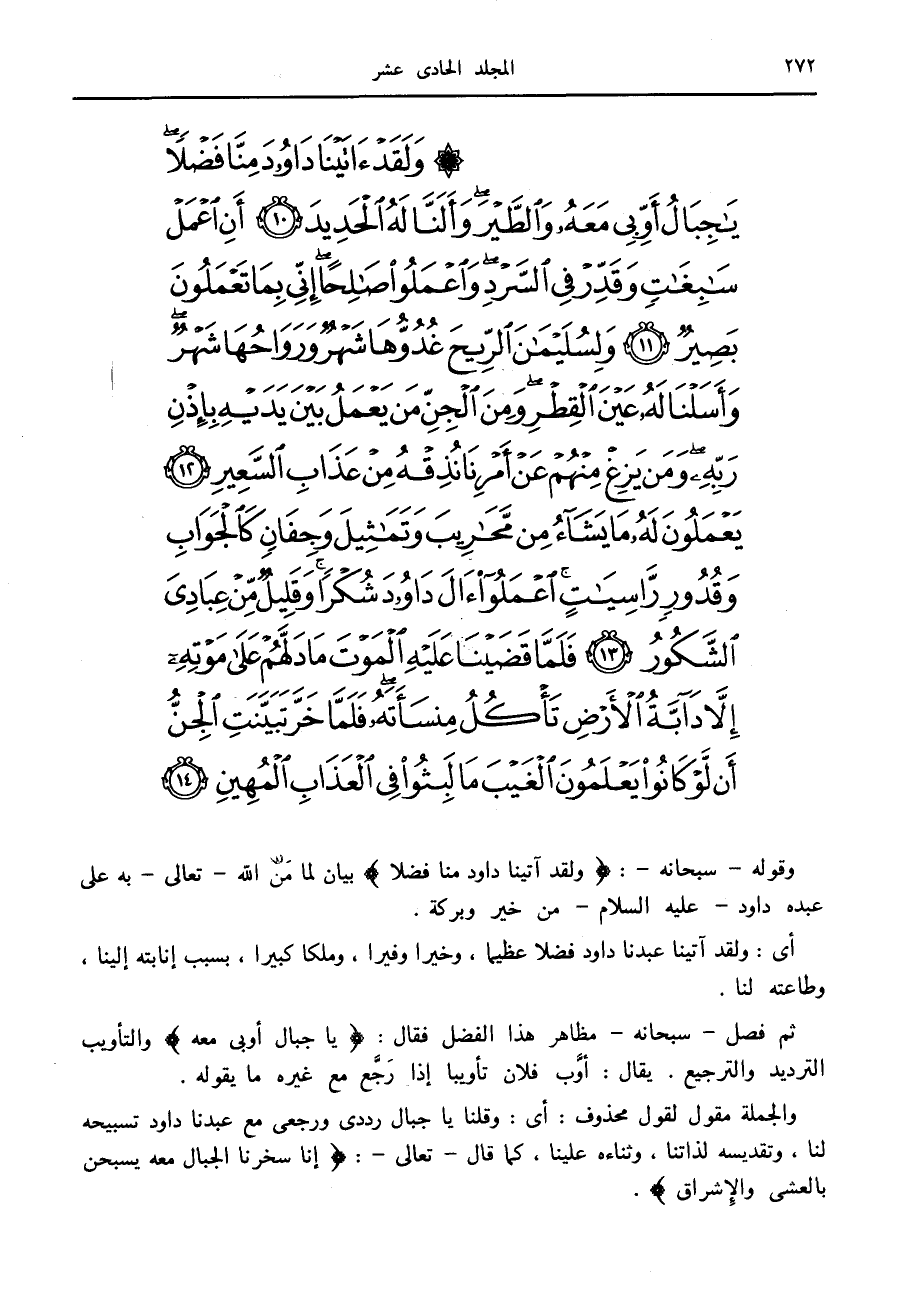 ٢٧٢ المجلد الحادى عشر
۞ وَلَقَدْ ءَاتَيْنَا دَاوُۥدَ مِنَّا فَضْلًاۖ
يَٰجِبَالُ أَوِّبِى مَعَهُۥ وَٱلطَّيْرَۖ وَأَلَنَّا لَهُ ٱلْحَدِيدَ ١٠ أَنِ ٱعْمَلْ
سَٰبِغَٰتٍ وَقَدِّرْ فِى ٱلسَّرْدِۖ وَٱعْمَلُوا۟ صَٰلِحًاۖ إِنِّى بِمَا تَعْمَلُونَ
بَصِيرٌ ١١ وَلِسُلَيْمَٰنَ ٱلرِّيحَ غُدُوُّهَا شَهْرٌ وَرَوَاحُهَا شَهْرٌۖ
وَأَسَلْنَا لَهُۥ عَيْنَ ٱلْقِطْرِۖ وَمِنَ ٱلْجِنِّ مَن يَعْمَلُ بَيْنَ يَدَيْهِ بِإِذْنِ
رَبِّهِۦۖ وَمَن يَزِغْ مِنْهُمْ عَنْ أَمْرِنَا نُذِقْهُ مِنْ عَذَابِ ٱلسَّعِيرِ ١٢
يَعْمَلُونَ لَهُۥ مَا يَشَآءُ مِن مَّحَٰرِيبَ وَتَمَٰثِيلَ وَجِفَانٍ كَٱلْجَوَابِ
وَقُدُورٍ رَّاسِيَٰتٍۚ ٱعْمَلُوٓا۟ ءَالَ دَاوُۥدَ شُكْرًاۚ وَقَلِيلٌ مِّنْ عِبَادِىَ
ٱلشَّكُورُ ١٣ فَلَمَّا قَضَيْنَا عَلَيْهِ ٱلْمَوْتَ مَا دَلَّهُمْ عَلَىٰ مَوْتِهِۦٓ
إِلَّا دَآبَّةُ ٱلْأَرْضِ تَأْكُلُ مِنسَأَتَهُۥۖ فَلَمَّا خَرَّ تَبَيَّنَتِ ٱلْجِنُّ
أَن لَّوْ كَانُوا۟ يَعْلَمُونَ ٱلْغَيْبَ مَا لَبِثُوا۟ فِى ٱلْعَذَابِ ٱلْمُهِينِ ١٤
وقوله – سبحانه – : ﴿ ولقد آتينا داود منا فضلا ﴾ بيان لما مَنَّ الله – تعالى – به على
عبده داود – عليه السلام – من خير وبركة .
أى : ولقد آتينا عبدنا داود فضلا عظيما ، وخيرا وفيرا ، وملكا كبيرا ، بسبب إنابته إلينا ،
وطاعته لنا .
ثم فصل – سبحانه – مظاهر هذا الفضل فقال : ﴿ يا جبال أوبى معه ﴾ والتأويب
الترديد والترجيع . يقال : أوَّب فلان تأويبا إذا رَجَّع مع غيره ما يقوله .
والجملة مقول لقول محذوف : أى : وقلنا يا جبال رددى ورجعى مع عبدنا داود تسبيحه
لنا ، وتقديسه لذاتنا ، وثناءه علينا ، كما قال – تعالى – : ﴿ إنا سخرنا الجبال معه يسبحن
بالعشى والإشراق ﴾ .